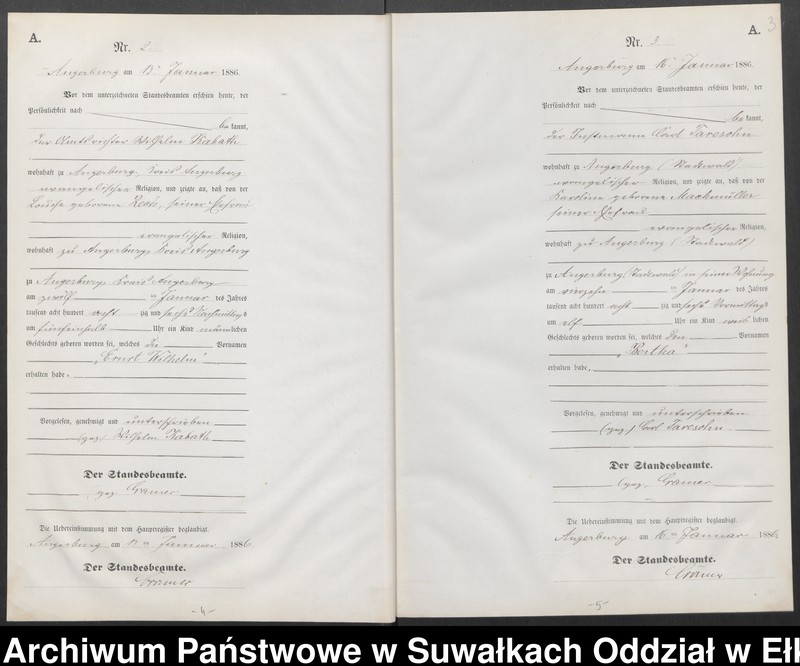 A.
Nr. 2.
Angerburg am 13. Januar 1886.
Vor dem unterzeichneten Standesbeamten erschien heute, der
Persönlichkeit nach
be kannt,
der Amtsrichter Wilhelm Kabath
wohnhaft zu Angerburg, Kreis Angerburg
evangelischer Religion, und zeigte an, daß von der
Louise geborene seiner Ehefrau
evangelischer Religion,
wohnhaft zu Angerburg, Kreis Angerburg
zu Angerburg, Kreis Angerburg
am zwölf ten Januar des Jahres
tausend acht hundert acht zig und sechs Nachmittags
um fünfeinhalb Uhr ein Kind männlichen
Geschlechts geboren worden sei, welches die Vornamen
"Ernst Wilhelm"
erhalten habe.
Vorgelesen, genehmigt und unterschrieben
(gez.) Wilhelm Kabath
Der Standesbeamte.
gez. Cramer
Die Uebereinstimmung mit dem Hauptregister beglaubigt.
Angerburg am Januar 1886
Der Standesbeamte.
Cramer
-4-
3
A.
Nr. 3.
Angerburg am Januar 1886.
Vor dem unterzeichneten Standesbeamten erschien heute, der
Persönlichkeit nach
be kannt,
der Instmann Carl
wohnhaft zu Angerburg (Stadtwald)
evangelischer Religion, und zeigte an, daß von der
Karoline geborene Mackmüller
seiner Ehefrau
evangelischer Religion,
wohnhaft zu Angerburg (Stadtwald)
zu Angerburg (Stadtwald) in seiner Wohnung
am vierzehn ten Januar des Jahres
tausend acht hundert acht zig und sechs Vormittags
um elf Uhr ein Kind weib lichen
Geschlechts geboren worden sei, welches den Vornamen
"Bertha"
erhalten habe.
Vorgelesen, genehmigt und unterschrieben
(gez.) Carl
Der Standesbeamte.
(gez.) Cramer
Die Uebereinstimmung mit dem Hauptregister beglaubigt.
Angerburg am Januar 1886
Der Standesbeamte.
Cramer
-5-
Archiwum Państwowe w Suwałkach Oddział w Ełk